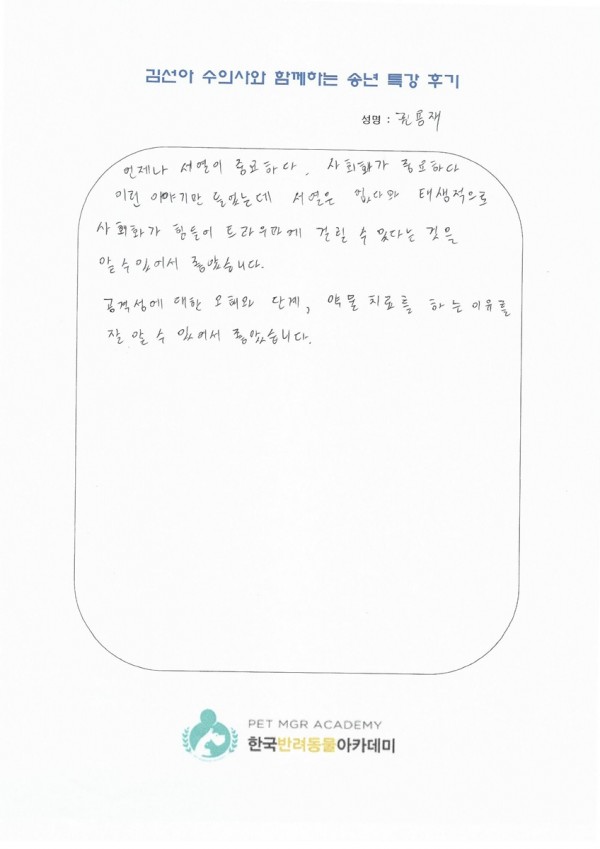 김선아 수의사와 함께하는 송년 특강 후기
성명 : 권용재
언제나 서열이 중요하다, 사회화가 중요하다
이런 이야기만 들었는데 서열은 없다와 태생적으로
사회화가 힘들어 트라우마에 걸릴 수 있다는 것을
알 수 있어서 좋았습니다.
공격성에 대한 오해와 단계, 약물 치료를 하는 이유를
잘 알 수 있어서 좋았습니다.
PET MGR ACADEMY
한국반려동물아카데미